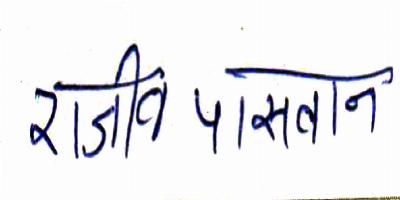 राजीव पासवान